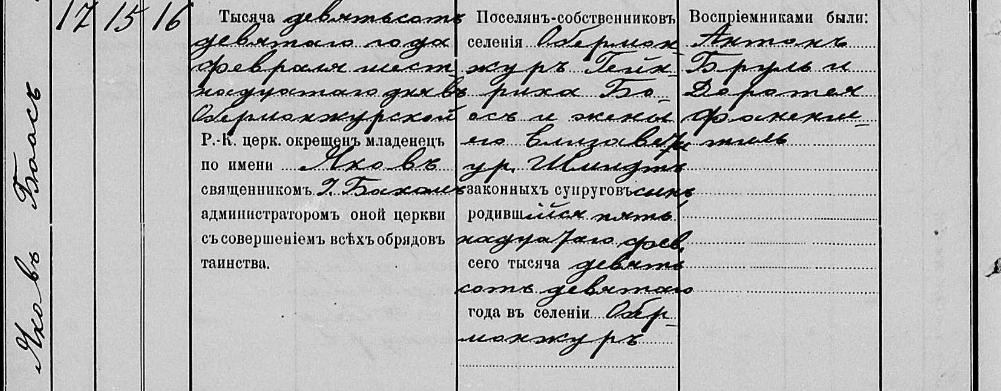 Яковъ Боосъ
17 15 16
Тысяча девятьсотъ
девятаго года
февраля шест-
надцатаго дня въ
Обермонжурской
Р.-К. церк. окрещенъ младенецъ
по имени Яковъ
священникомъ I. Бахомъ
администраторомъ оной церкви
съ совершеніемъ всѣхъ обрядовъ
таинства.
Поселянъ-собственниковъ
селенія Обермон-
журъ Гейн-
риха Бо-
осъ и жены
его Елизаветы
ур. Шмидтъ
законныхъ супруговъ сынъ,
родившійся пят-
надцатаго фев.
сего тысяча девять
сотъ девятаго
года въ селеніи Обер-
монжуръ
Воспріемниками были:
Антонъ
Бруль и
Доротея